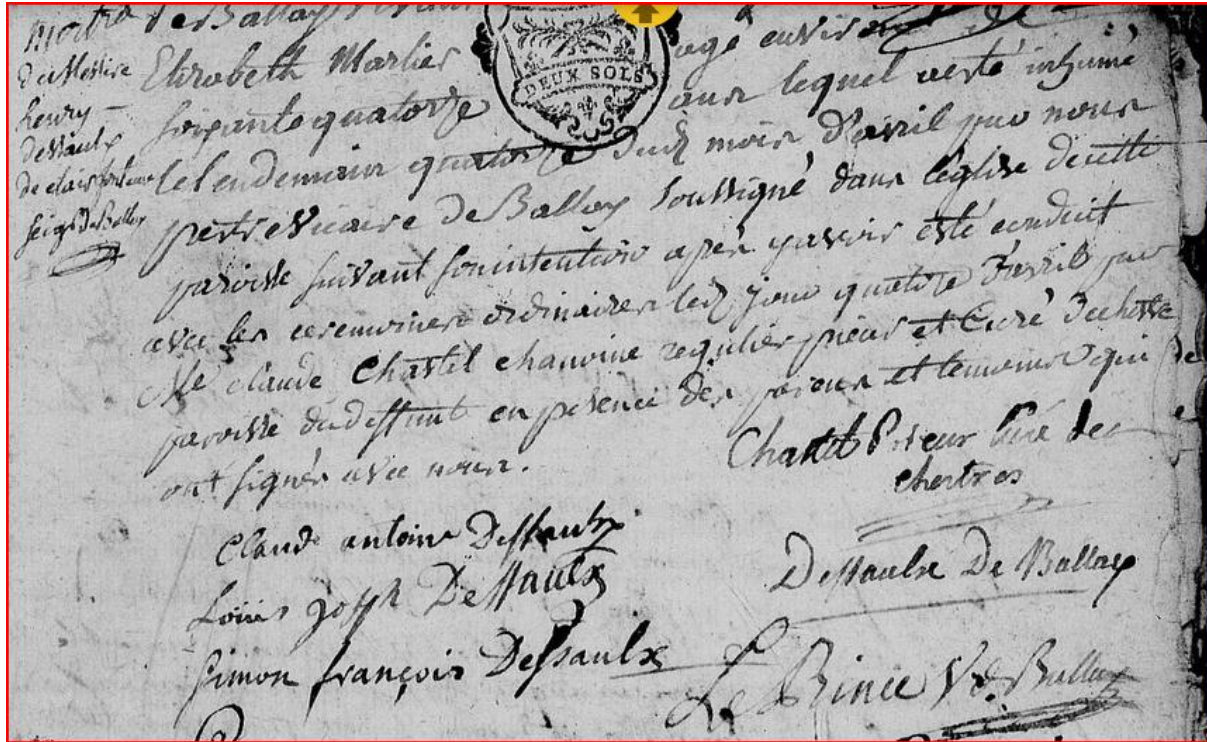 mort
de Messire
henry
dessaulx
de clairfontaine
seigr de Ballay
de Ballay
Elizabeth Marlier agé environ
DEUX SOLS
soixante quatorze ans lequel a esté inhumé
le lendemain quatorze dud mois d'avril par nous
pretre vicaire de Ballay soussigné dans l'eglise de cette
paroisse suivant son intention apres y avoir esté conduit
avec les ceremonies ordinaires led jour quatorze d'avril par
Me claude Chastel chanoine regulier prieur et curé de chestre
paroisse du deffunt en presence des parens et temoins qui
ont signés avec nous.
Chastel Prieur Curé de
chestres
Claude antoine Dessaulx
Dessaulx De Ballay
Louis Joseph Dessaulx
Simon françois Dessaulx
Le Prince Vc. Ballay